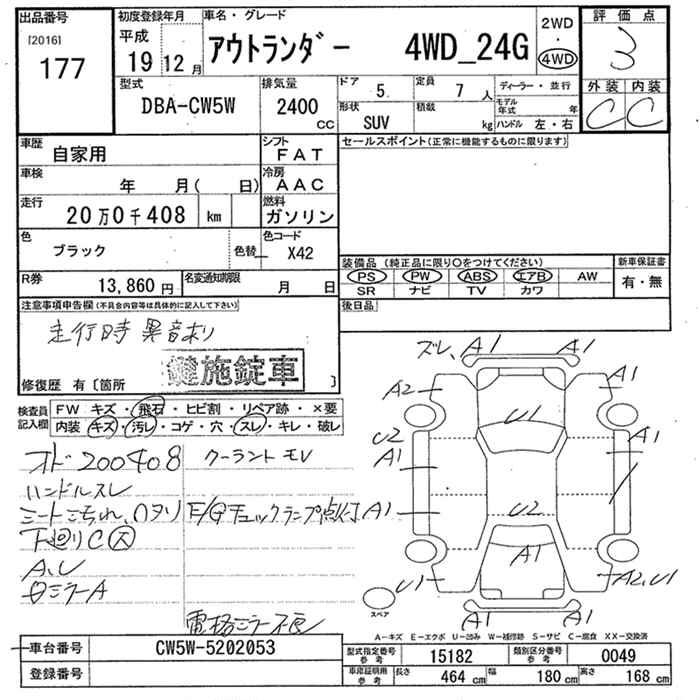 出品番号
[2016]
177
初度登録年月
平成
19 12月
車名・グレード
アウトランダー 4WD_24G
2WD
・
4WD
評価点
3
外装 内装
C C
型式
DBA-CW5W
排気量
2400
CC
ドア 5
定員 7 人
ディーラー・並行
形状
SUV
積載
kg
モデル年式 年
ハンドル 左・右
車歴
自家用
シフト
FAT
車検
年 月( 日)
冷房
AAC
走行
20万0千408 km
燃料
ガソリン
色
ブラック
色替
色コード
X42
R券
13,860円
名変通知期限
月 日
セールスポイント(正常に機能するものに限ります)
装備品(純正品に限り○をつけてください)
PS PW ABS エアB AW
SR ナビ TV カワ
新車保証書
有・無
後日品
注意事項申告欄(不具合内容等は具体的に記入して下さい)
走行時 異音あり
鍵施錠車
修復歴 有〔箇所 〕
検査員記入欄
FW キズ・飛石・ヒビ割・リペア跡・×要
内装 キズ・汚レ・コゲ・穴・スレ・キレ・破レ
オド200408 クーラントモレ
ハンドルスレ
シートこぢれ、ロヌリ E/Gチェックランプ点灯
下廻りC
A、U
ロミラーA
電格ミラー不良
ズレ、A1 A1
A2 A1
U1
U2 A1
A1
A1 U2
A1
U1 A2、U1
A1 A1
スペア
A-キズ E-エクボ U-凹み W-補修跡 S-サビ C-腐食 XX-交換済
車台番号
CW5W-5202053
登録番号
型式指定番号参考 15182
類別区分番号参考 0049
車庫証明用参考
長さ 464 cm
幅 180 cm
高さ 168 cm